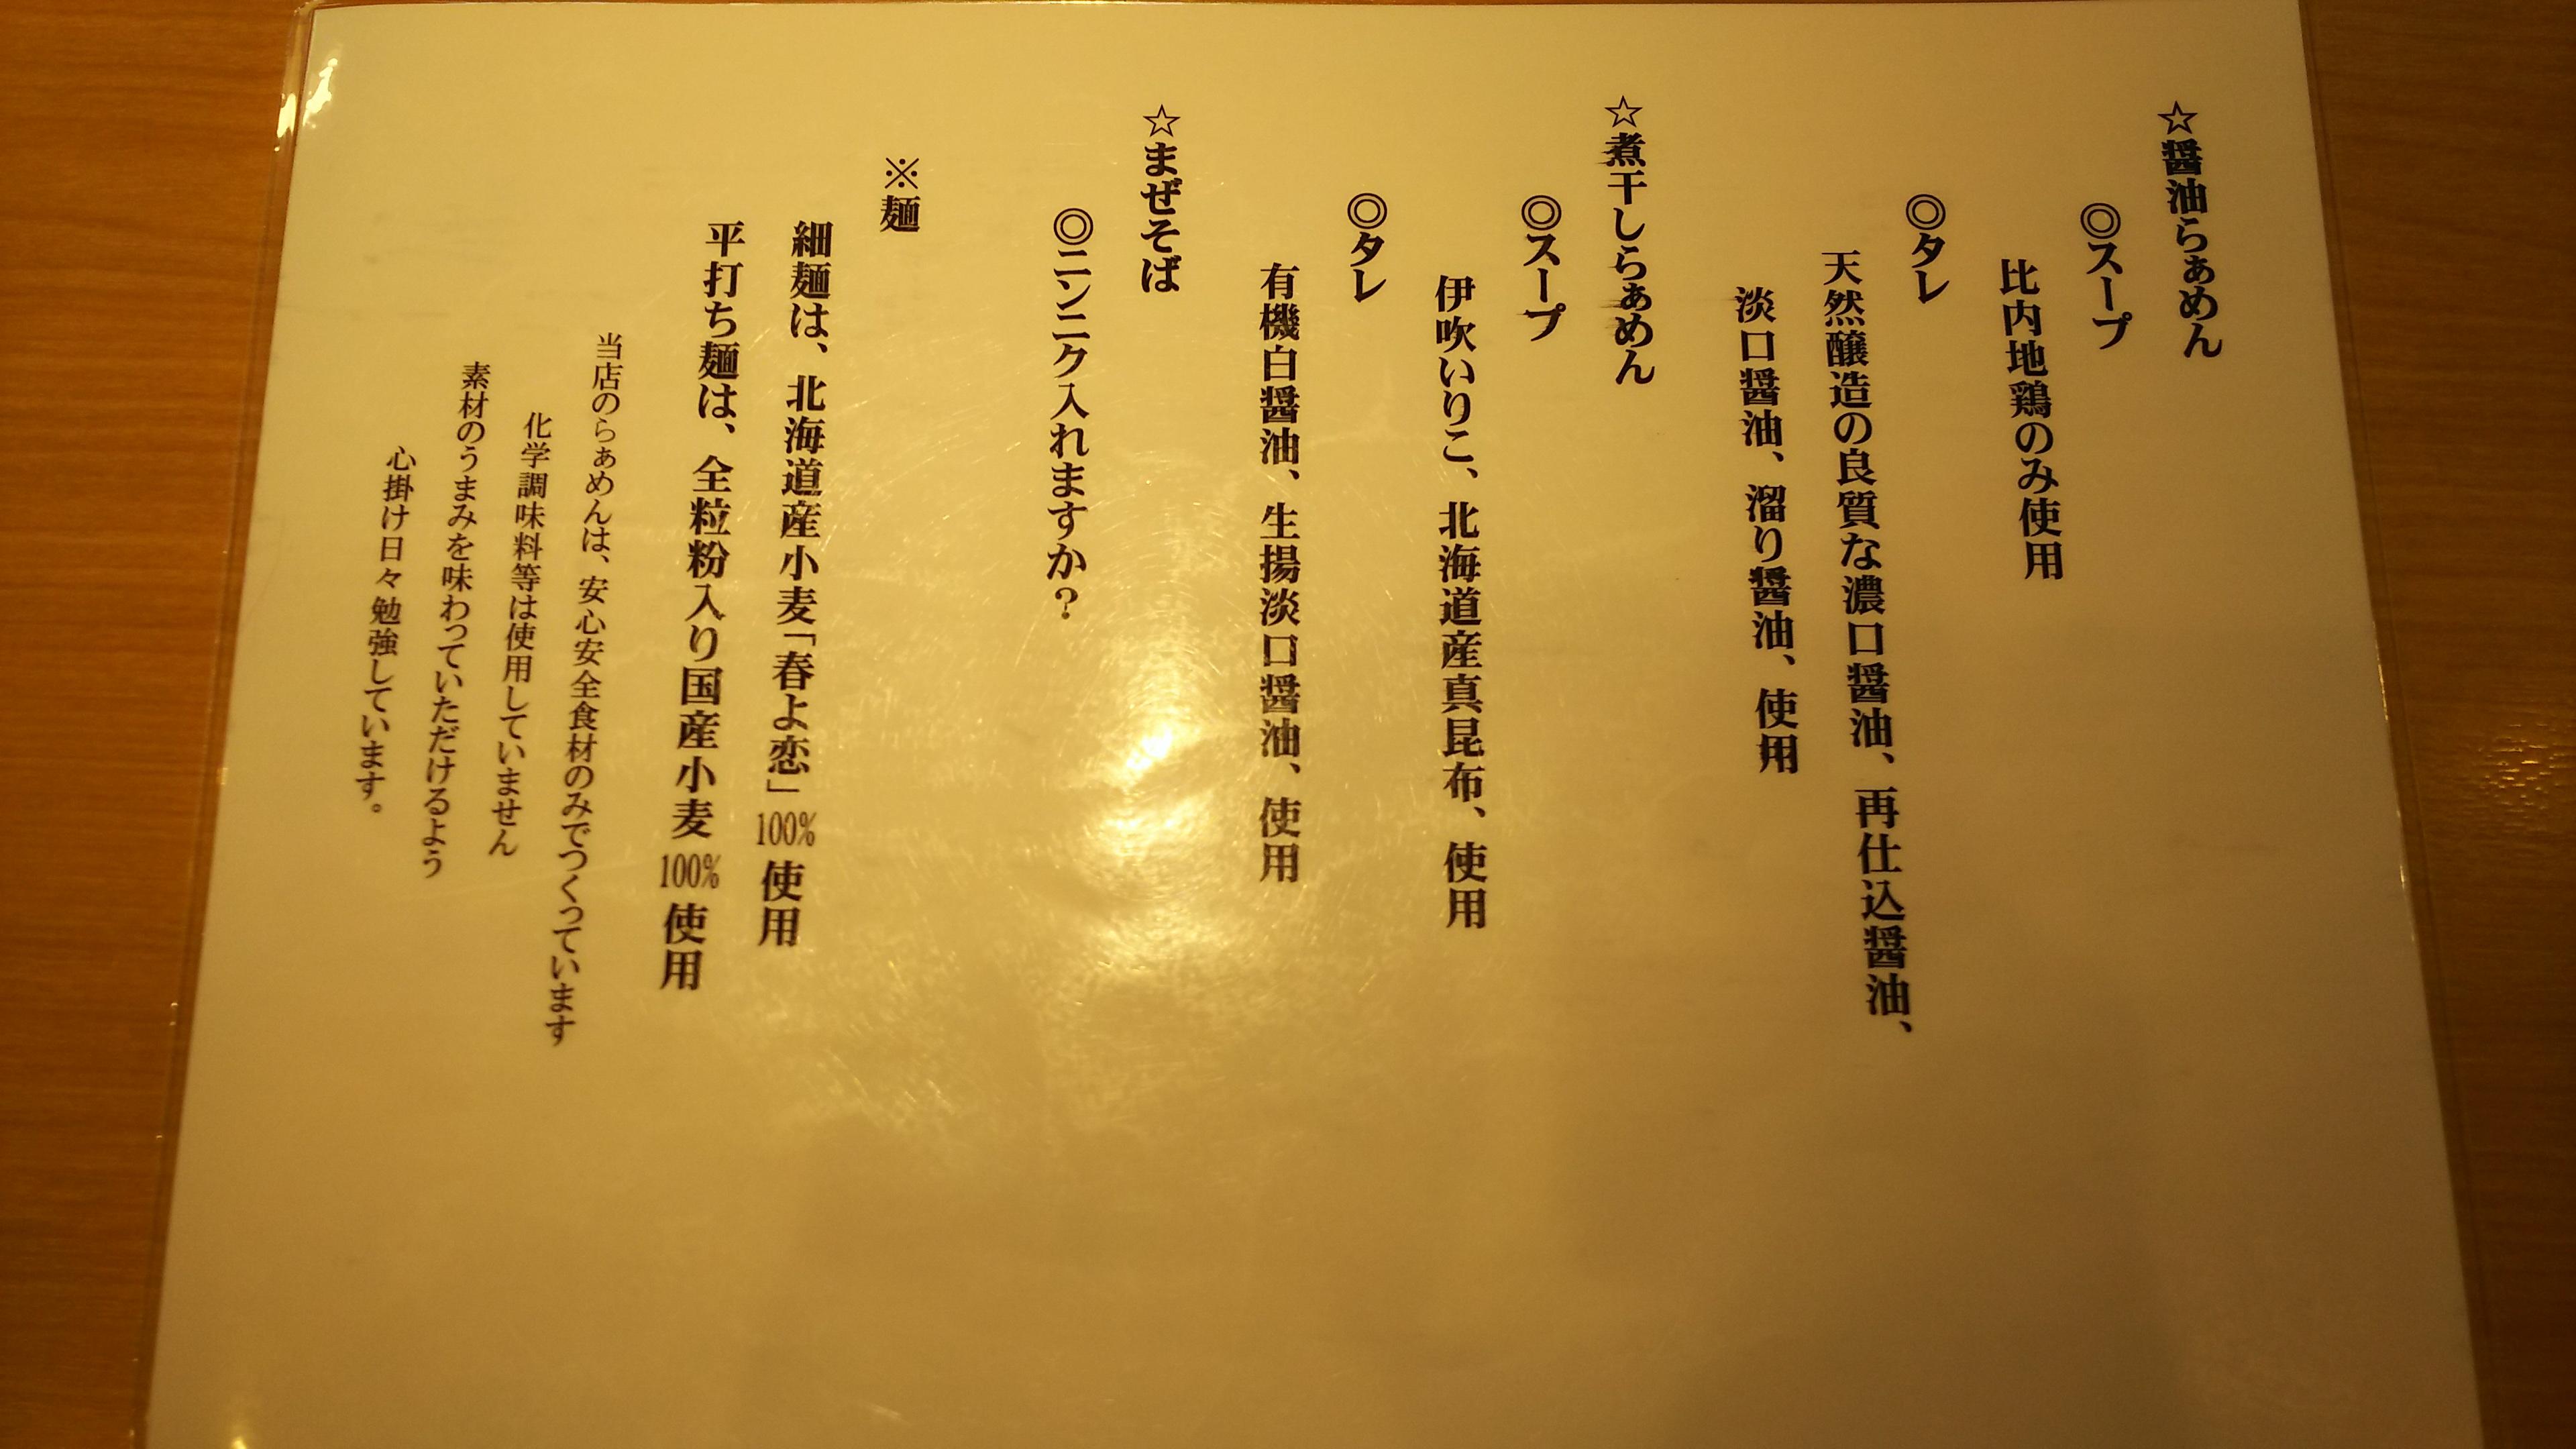 ☆醤油らぁめん
◎スープ
比内地鶏のみ使用
◎タレ
天然醸造の良質な濃口醤油、再仕込醤油、
淡口醤油、溜り醤油、使用
☆煮干しらぁめん
◎スープ
伊吹いりこ、北海道産真昆布、使用
◎タレ
有機白醤油、生揚淡口醤油、使用
☆まぜそば
◎ニンニク入れますか？
※麺
細麺は、北海道産小麦「春よ恋」100%使用
平打ち麺は、全粒粉入り国産小麦100%使用
当店のらぁめんは、安心安全食材のみでつくっています
化学調味料等は使用していません
素材のうまみを味わっていただけるよう
心掛け日々勉強しています。